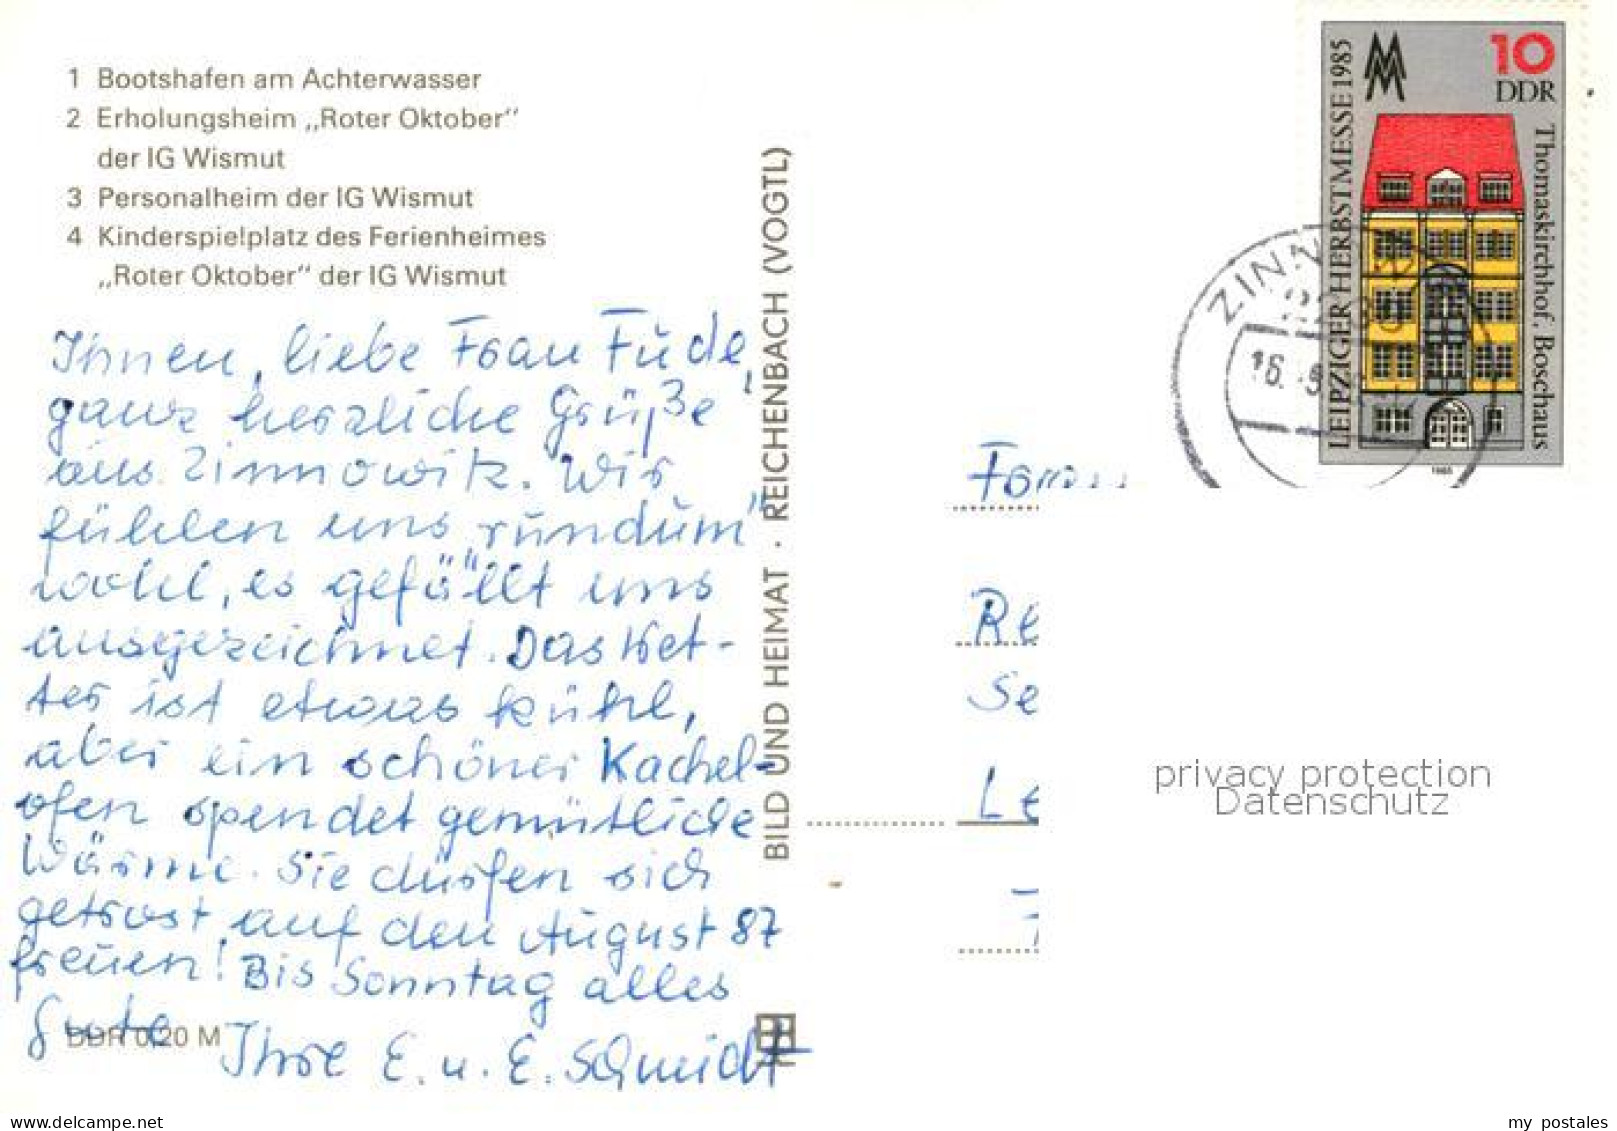 1 Bootshafen am Achterwasser
2 Erholungsheim „Roter Oktober“
der IG Wismut
3 Personalheim der IG Wismut
4 Kinderspielplatz des Ferienheimes
„Roter Oktober“ der IG Wismut
Ihnen, liebe Frau Fude,
ganz herzliche Grüße
aus Zinnowitz. Wir
fühlen uns „rundum“
wohl, es gefällt uns
ausgezeichnet. Das Wet-
ter ist etwas kühl,
aber ein schöner Kachel-
ofen spendet gemütliche
Wärme. Sie dürfen sich
getrost auf den August 87
freuen! Bis Sonntag alles
Gute
Ihre E. u. E. Schmidt
DDR 0,20 M
BILD UND HEIMAT · REICHENBACH (VOGTL)
LEIPZIGER HERBSTMESSE 1985
MM
10
DDR
Thomaskirchhof, Boschaus
1985
ZINN
16.
Re
Se
Le
privacy protection
Datenschutz
www.delcampe.net
my_postales